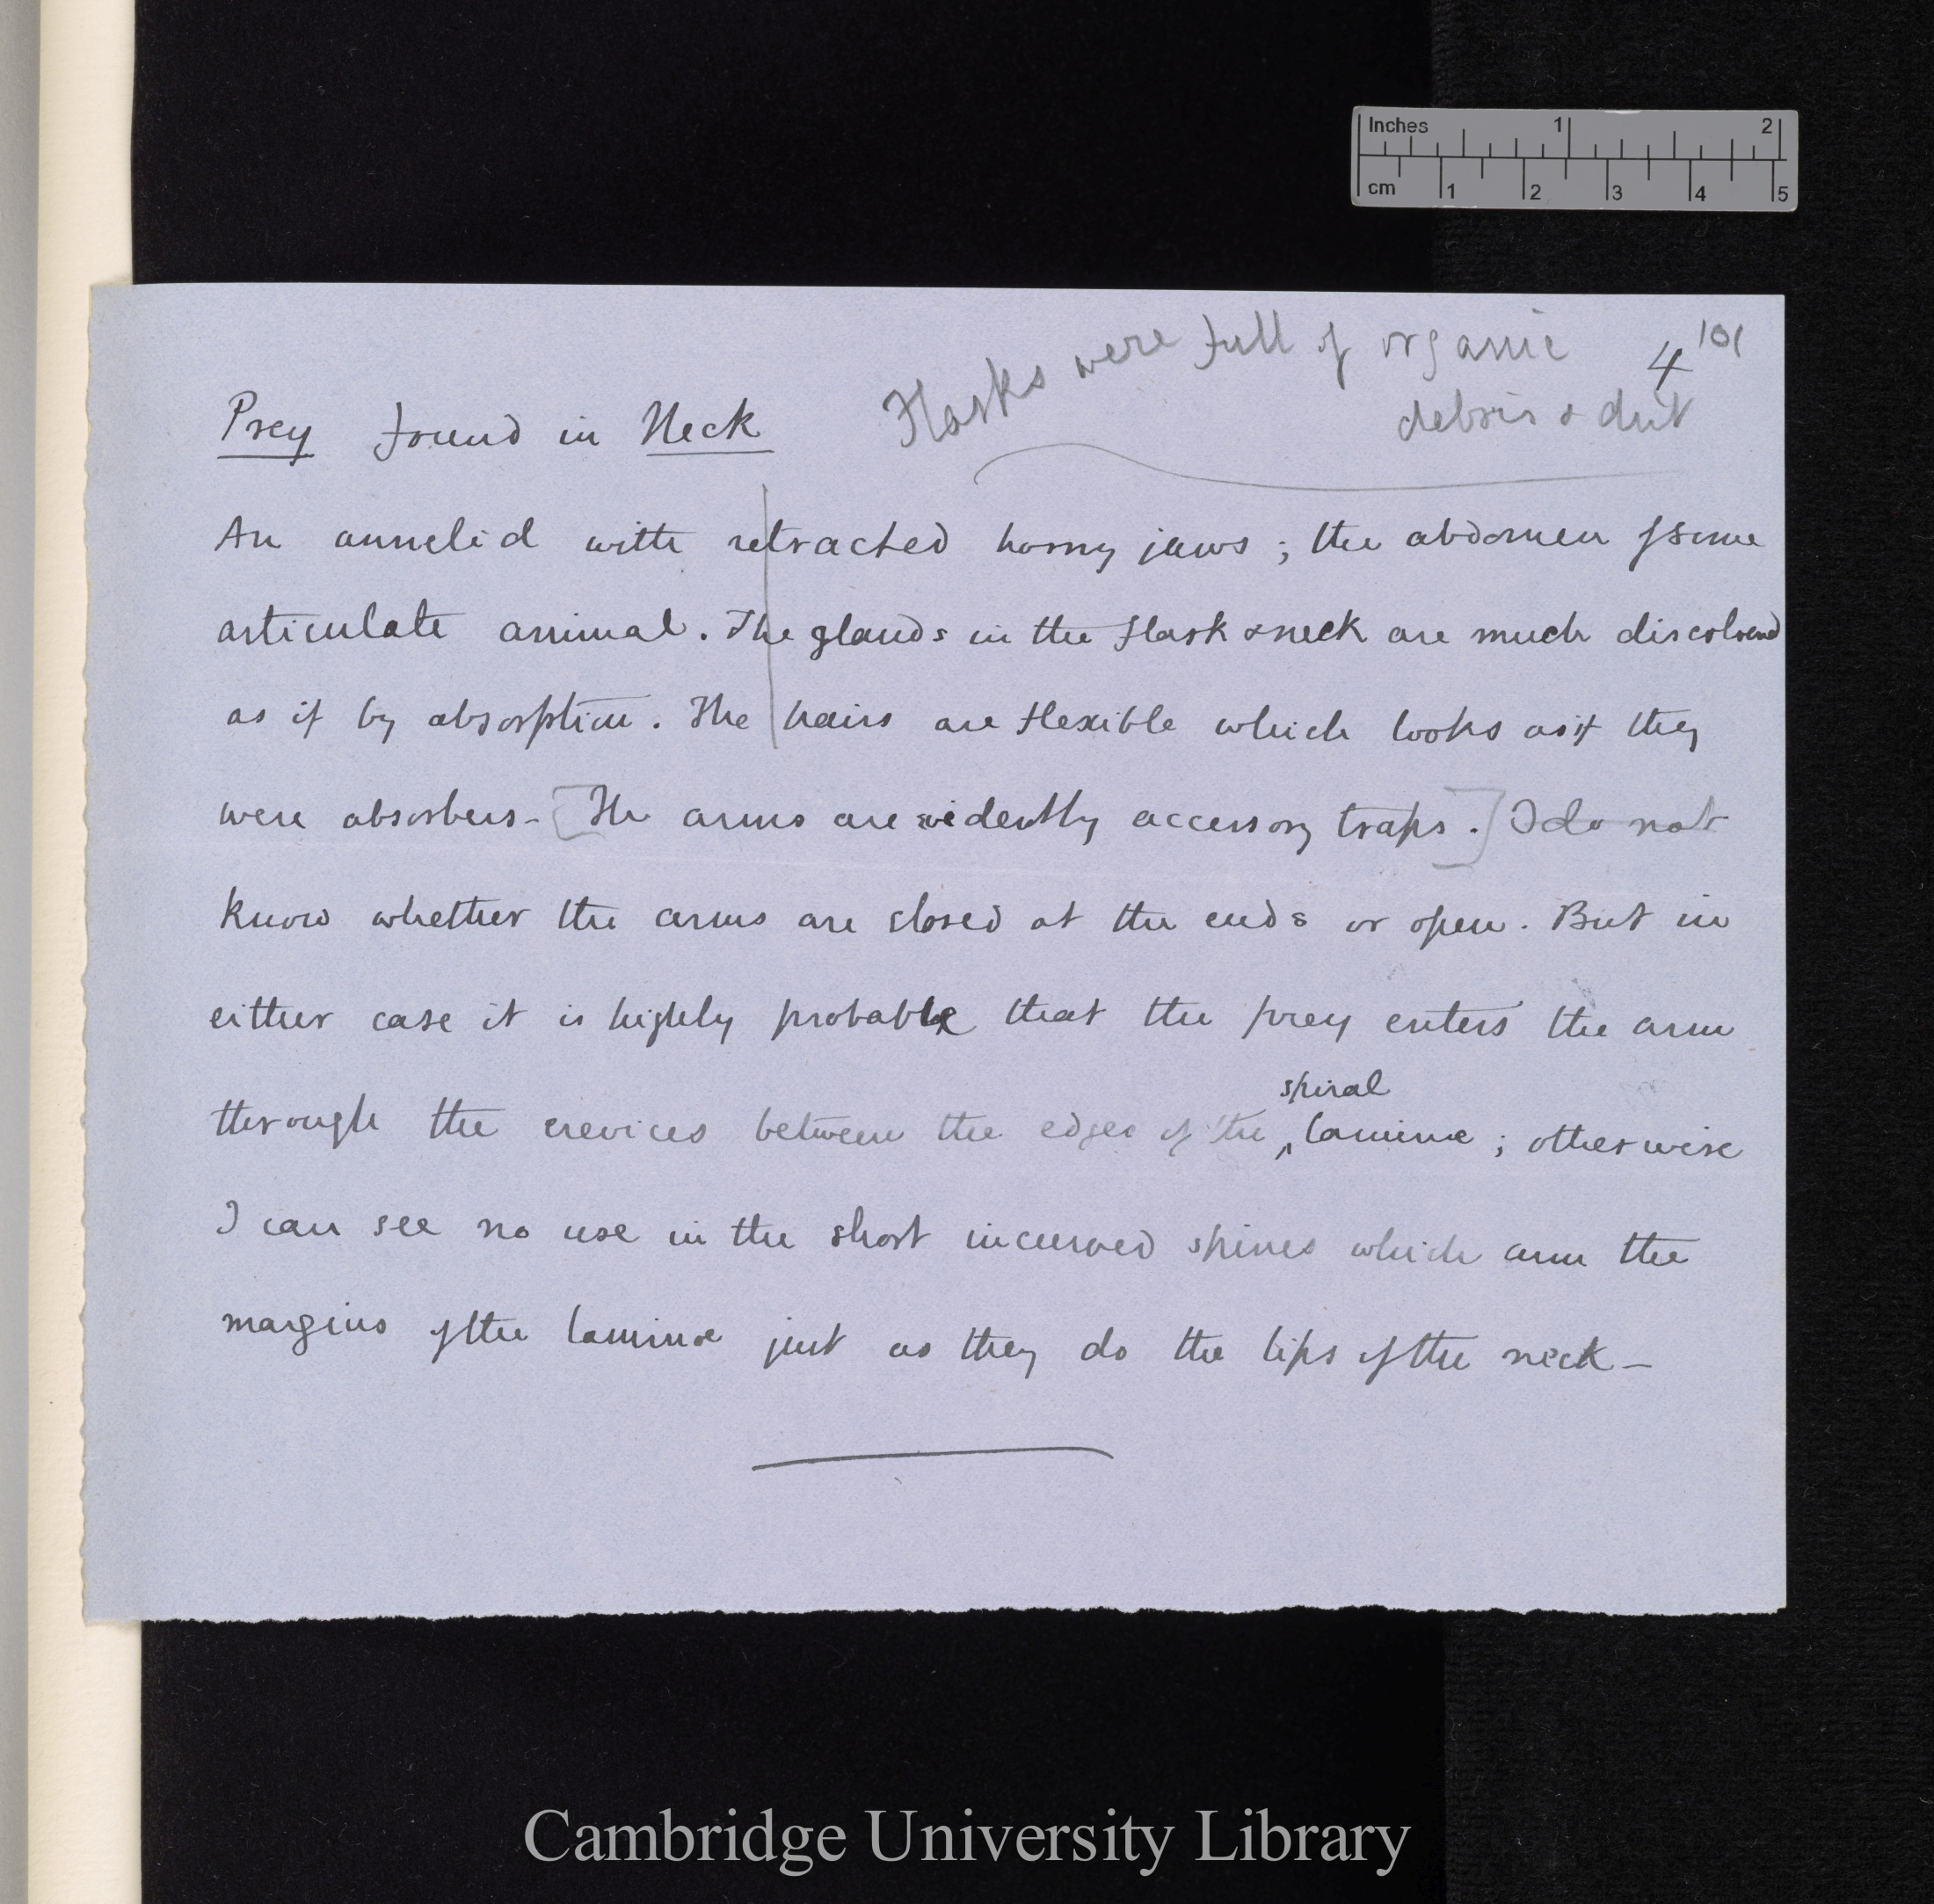 Inches 1 2
cm 1 2 3 4 5
Flasks were full of organic 4 101
debris & dirt
Prey found in Neck
An annelid with retracted horny jaws ; the abdomen of some
articulate animal. The glands in the flask & neck are much discoloured
as if by absorption. The hairs are flexible which looks as if they
were absorbers - [The arms are evidently accessory traps.] I do not
know whether the arms are closed at the ends or open. But in
either case it is highly probable that the prey enters the arm
spiral
through the crevices between the edges of the ^ laminæ ; otherwise
I can see no use in the short incurved spines which arm the
margins of the laminæ just as they do the lips of the neck -
Cambridge University Library